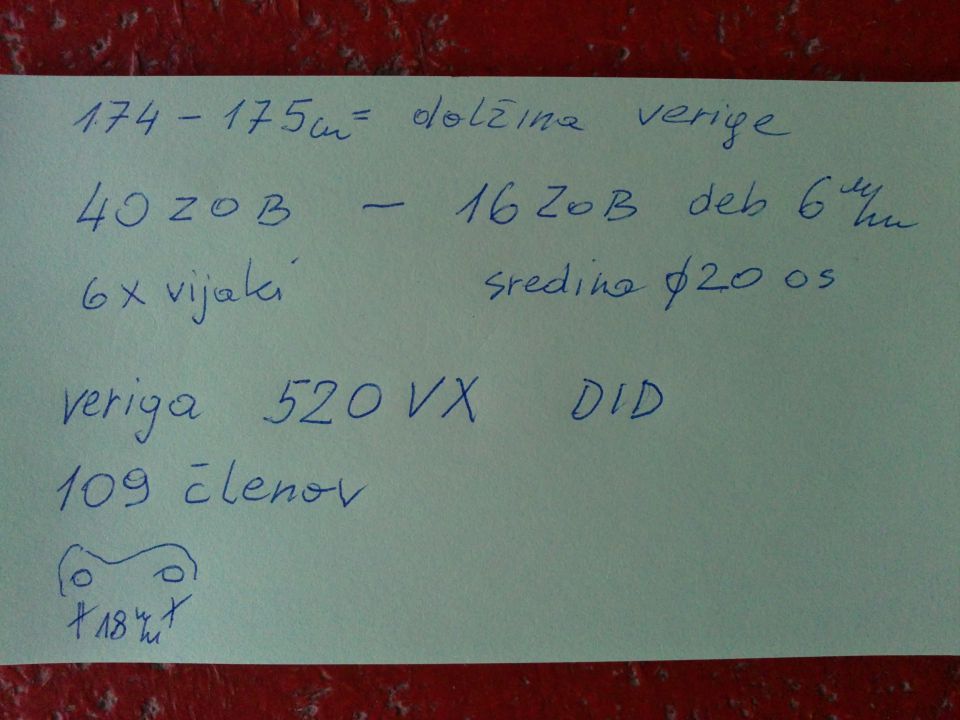 174 - 175 cm = dolžina verige
40 ZOB - 16 ZOB deb 6 mm
6x vijaki sredina ϕ20 os
veriga 520 VX DID
109 členov
18 mm